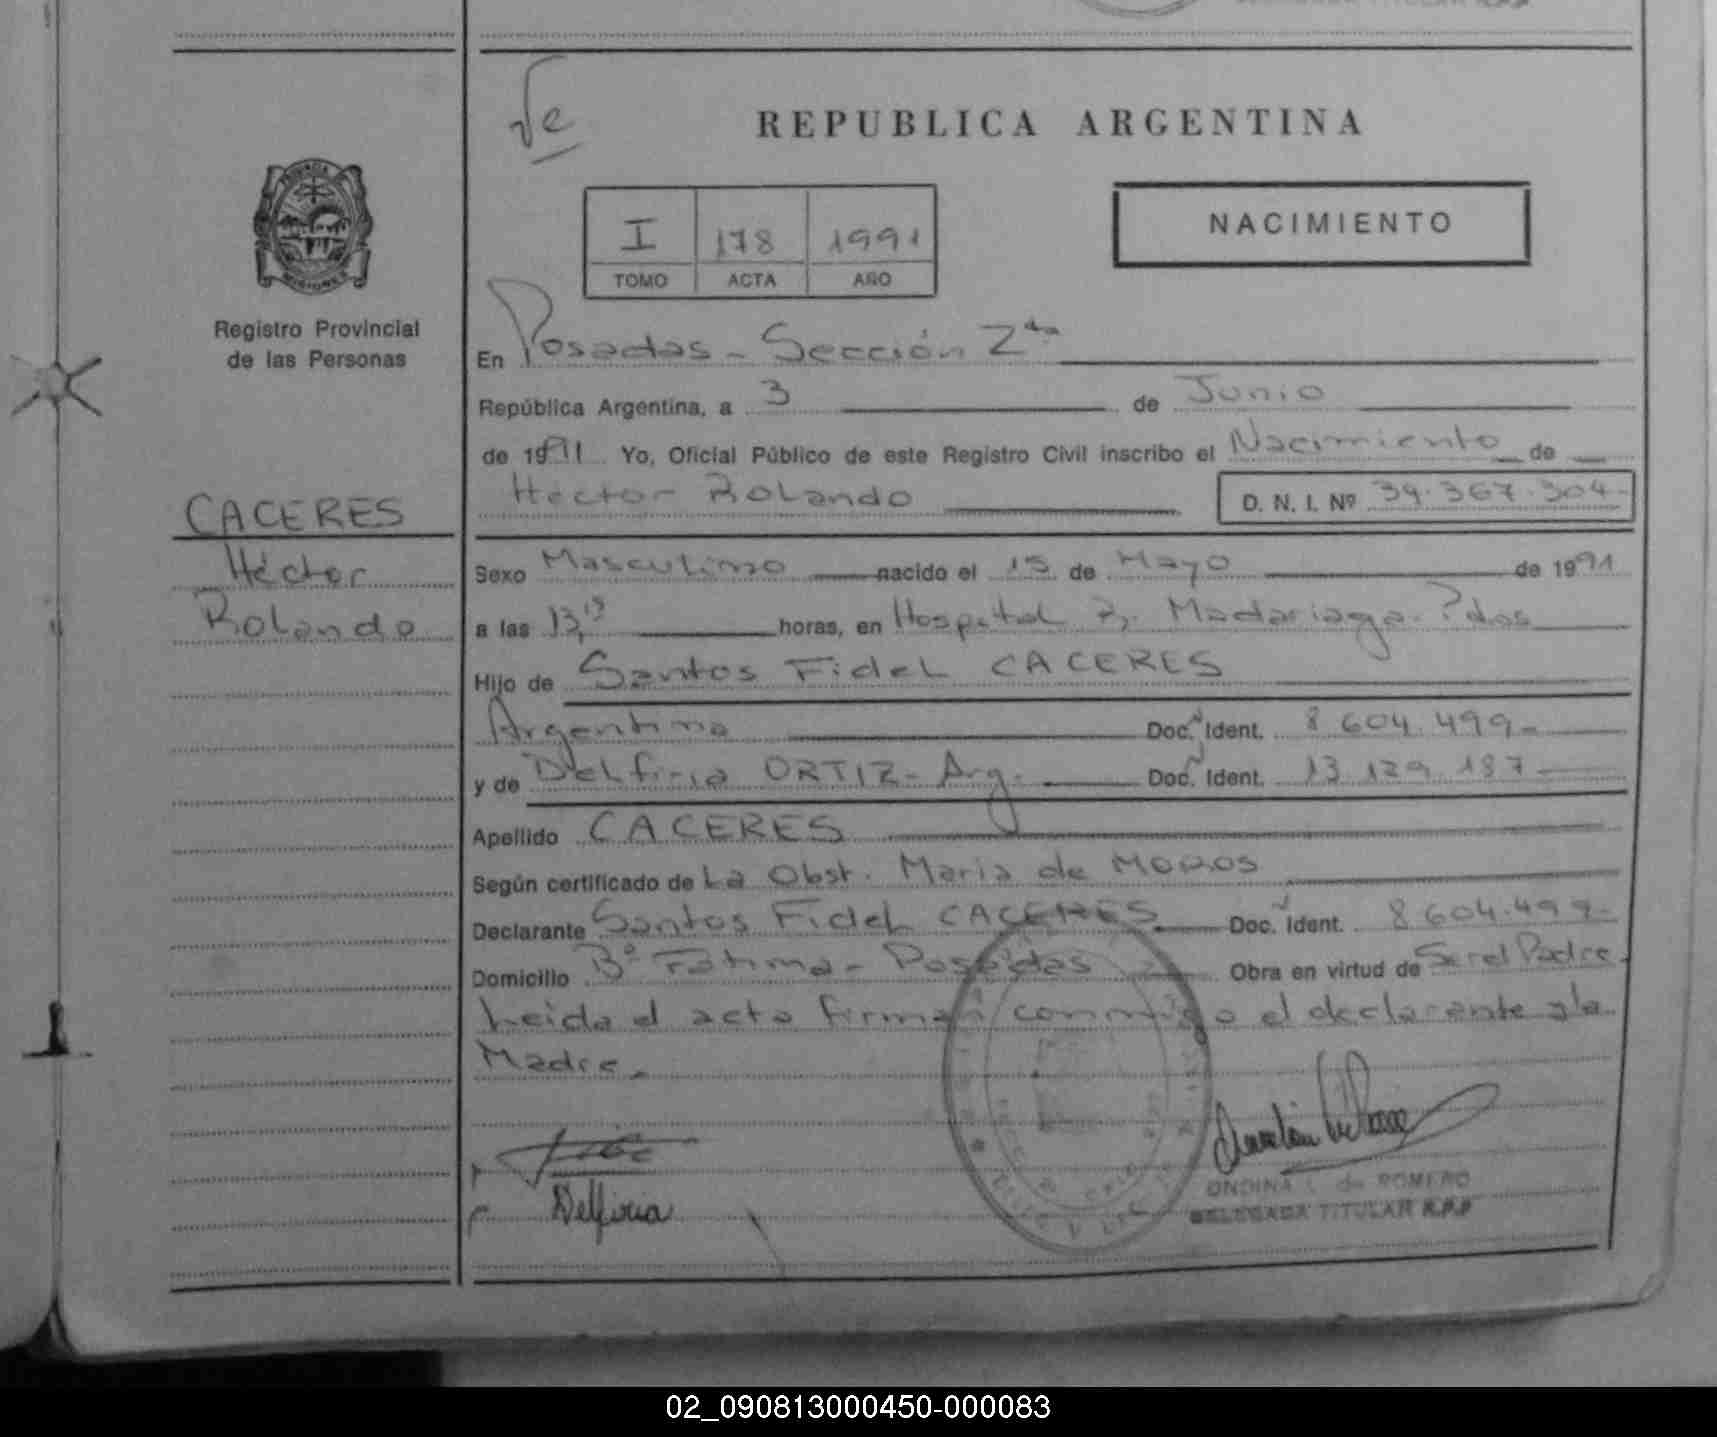 Ve
REPUBLICA ARGENTINA
NACIMIENTO
I 178 1991
TOMO ACTA AÑO
Registro Provincial
de las Personas
CACERES
Héctor
Rolando
En Posadas - Sección 2da
República Argentina, a 3 de Junio
de 1991 Yo, Oficial Público de este Registro Civil inscribo el Nacimiento de
Héctor Rolando D. N. I. Nº 39.367.304-
Sexo Masculino nacido el 15 de Mayo de 1991
a las 13,15 horas, en Hospital R. Madariaga - Pdas
Hijo de Santos Fidel CACERES
Argentina Doc. Ident. 8.604.499-
y de Delfiria ORTIZ - Arg. Doc. Ident. 13.129.187-
Apellido CACERES
Según certificado de La Obst. Maria de MOROS
Declarante Santos Fidel CACERES Doc. Ident. 8.604.499-
Domicilio Bº Fátima - Posadas Obra en virtud de Ser el Padre.
Leida el acta firman conmigo el declarante y la
Madre.-
Delfiria
ONDINA de ROMERO
DELEGADA TITULAR R.P.P
02_090813000450-000083